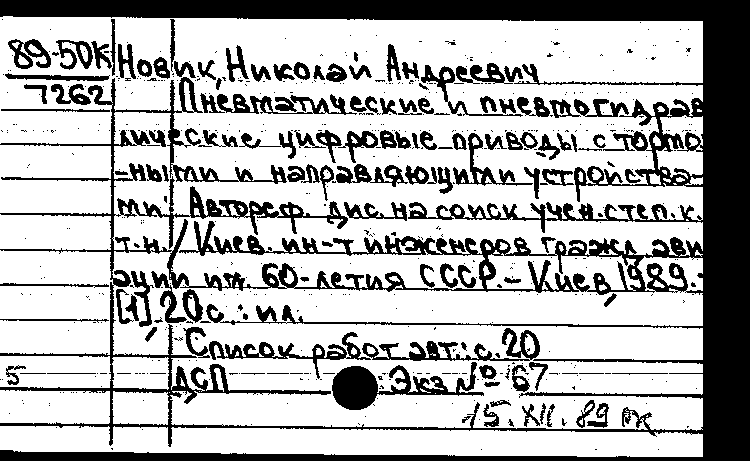 89-50К Новик, Николай Андреевич
7262 Пневматические и пневмогидрав
лические цифровые приводы с тормоз
-ными и направляющими устройства-
ми: Автореф. дис. на соиск учен. степ. к.
т.н. / Киев. ин-т инженеров гражд ави
ации им. 60-летия СССР. - Киев, 1989.-
[1], 20 с.: ил.
Список работ авт.: с. 20
5 ДСП Экз № 67
15. XII. 89